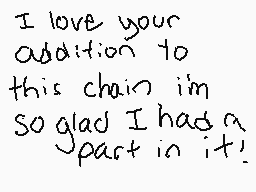 I love your
addition to
this chain i'm
so glad I had a
part in it!